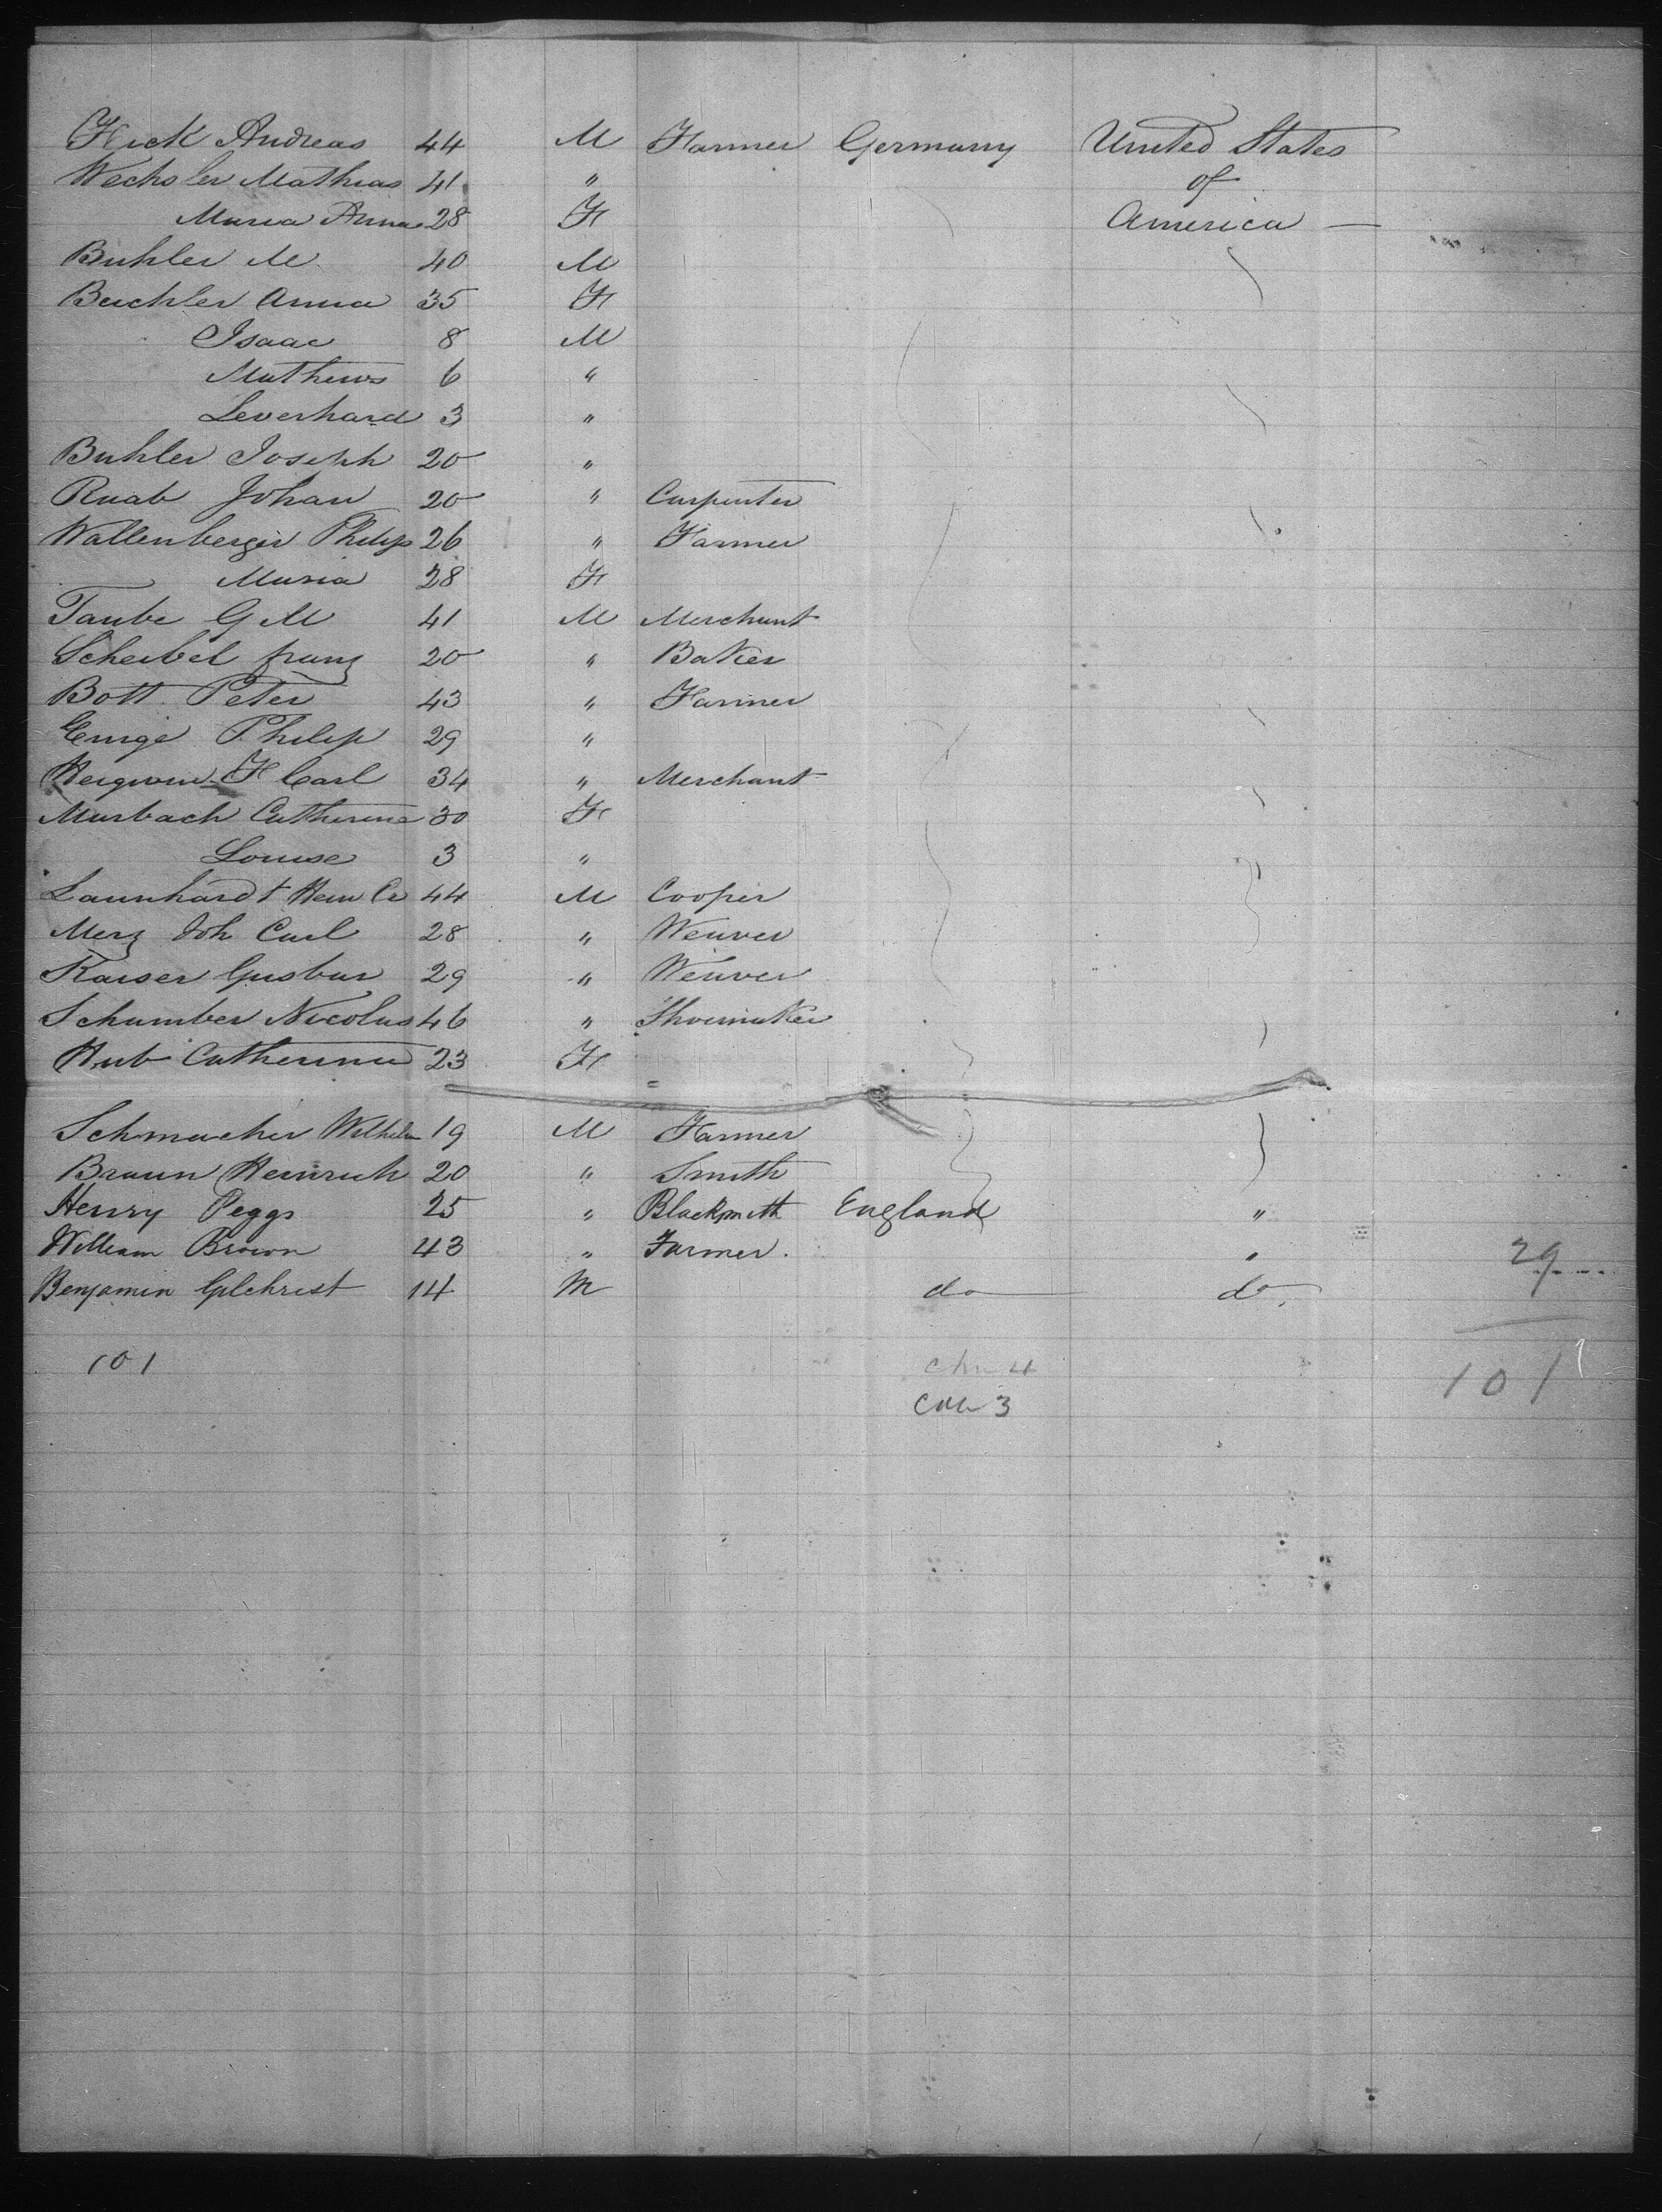 Fleck Andreas 44 M Farmer Germany United States
Wechsler Mathias 41 " of
Maria Anna 28 F America —
Buhler M. 40 M
Buchler Anna 35 F
Isaac 8 M
Mathews 6 "
Leverhard 3 "
Buhler Joseph 20 "
Raab Johan 20 " Carpenter
Wallenberger Philip 26 " Farmer
Maria 28 F
Taube G M 41 M Merchant
Scheibel franz 20 " Baker
Bott Peter 43 " Farmer
Philip 29 "
F Carl 34 " Merchant
Murbach Catherine 30 F
Louise 3 "
Launhardt Hein Cr 44 M Cooper
Merz Joh Carl 28 " Weaver
Kaiser Gustav 29 " Weaver
Schumber Nicolas 46 " Shoemaker
Hub Catherina 23 F
Schmacher Wilhelm 19 M Farmer
Braun Heinrich 20 " Smith
Henry Peggs 25 " Blacksmith England "
William Brown 43 " Farmer. " 29
Benjamin Gilchrist 14 M do do.
101 101
3